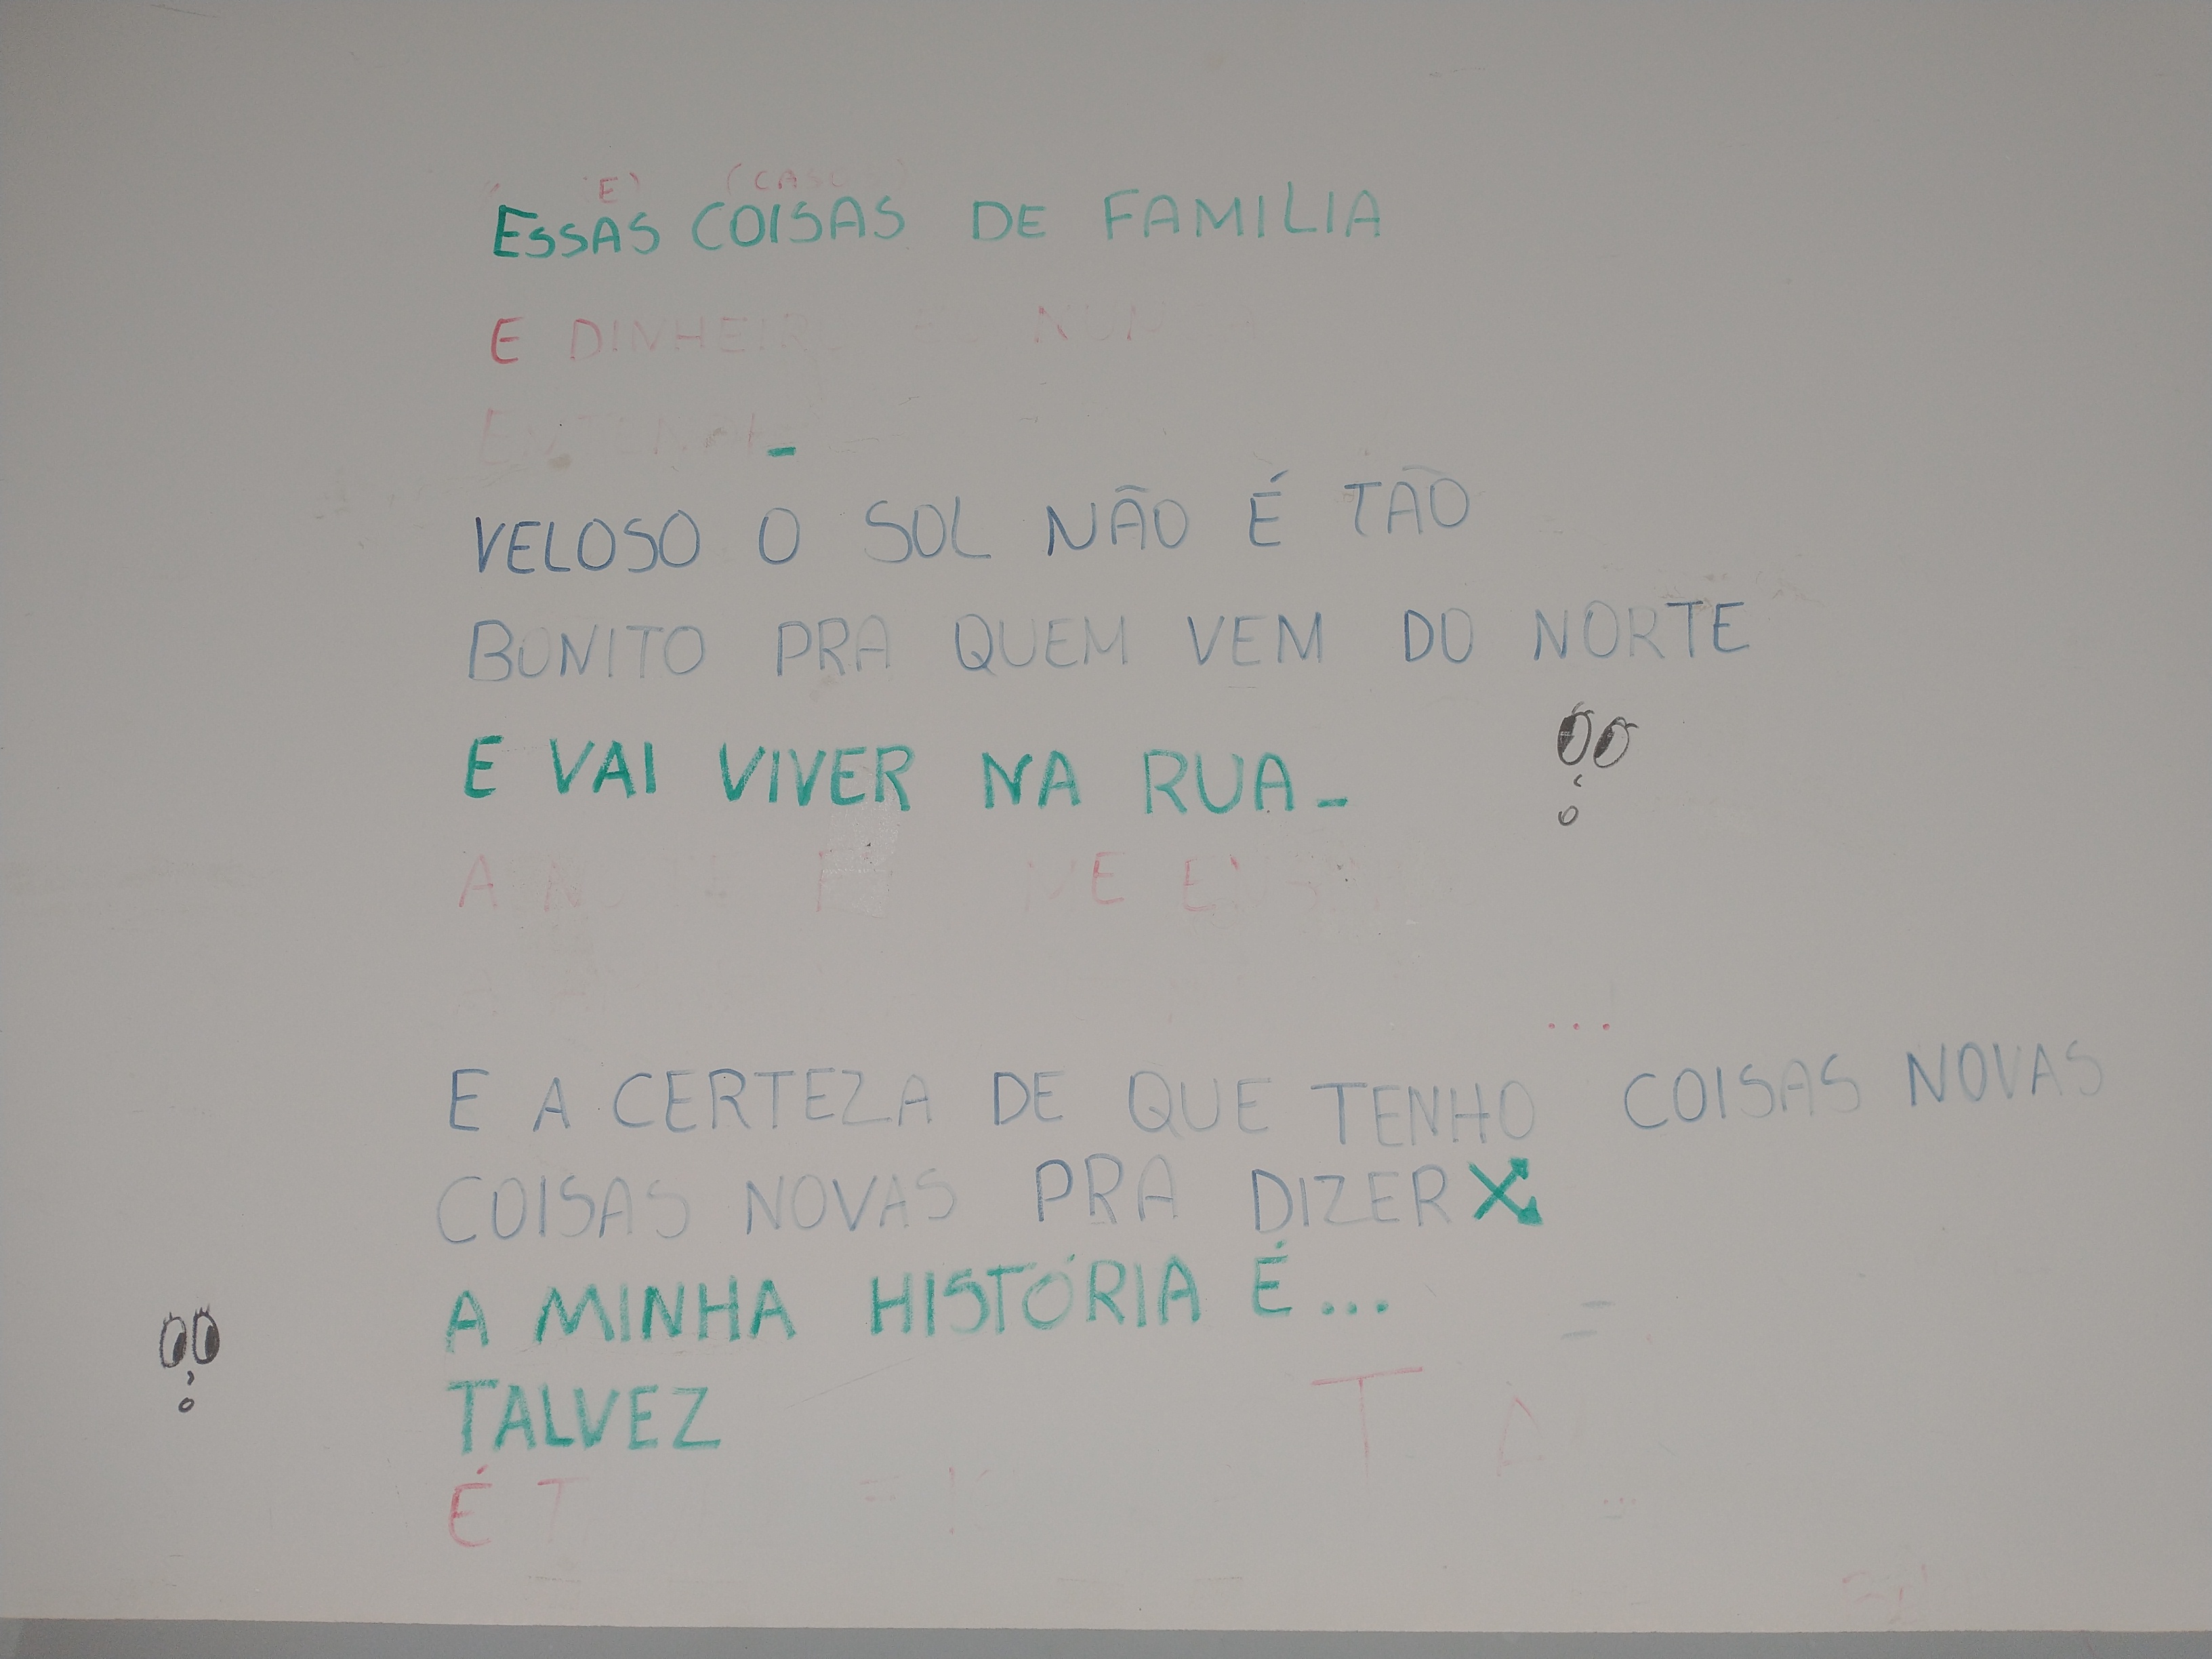 E) (CASO)
ESSAS COISAS DE FAMILIA
E DINHEIRO EU NUNCA
VELOSO O SOL NÃO É TÃO
BONITO PRA QUEM VEM DO NORTE
E VAI VIVER NA RUA-
A ME
...
E A CERTEZA DE QUE TENHO COISAS NOVAS
COISAS NOVAS PRA DIZER
A MINHA HISTÓRIA É...
TALVEZ
É T